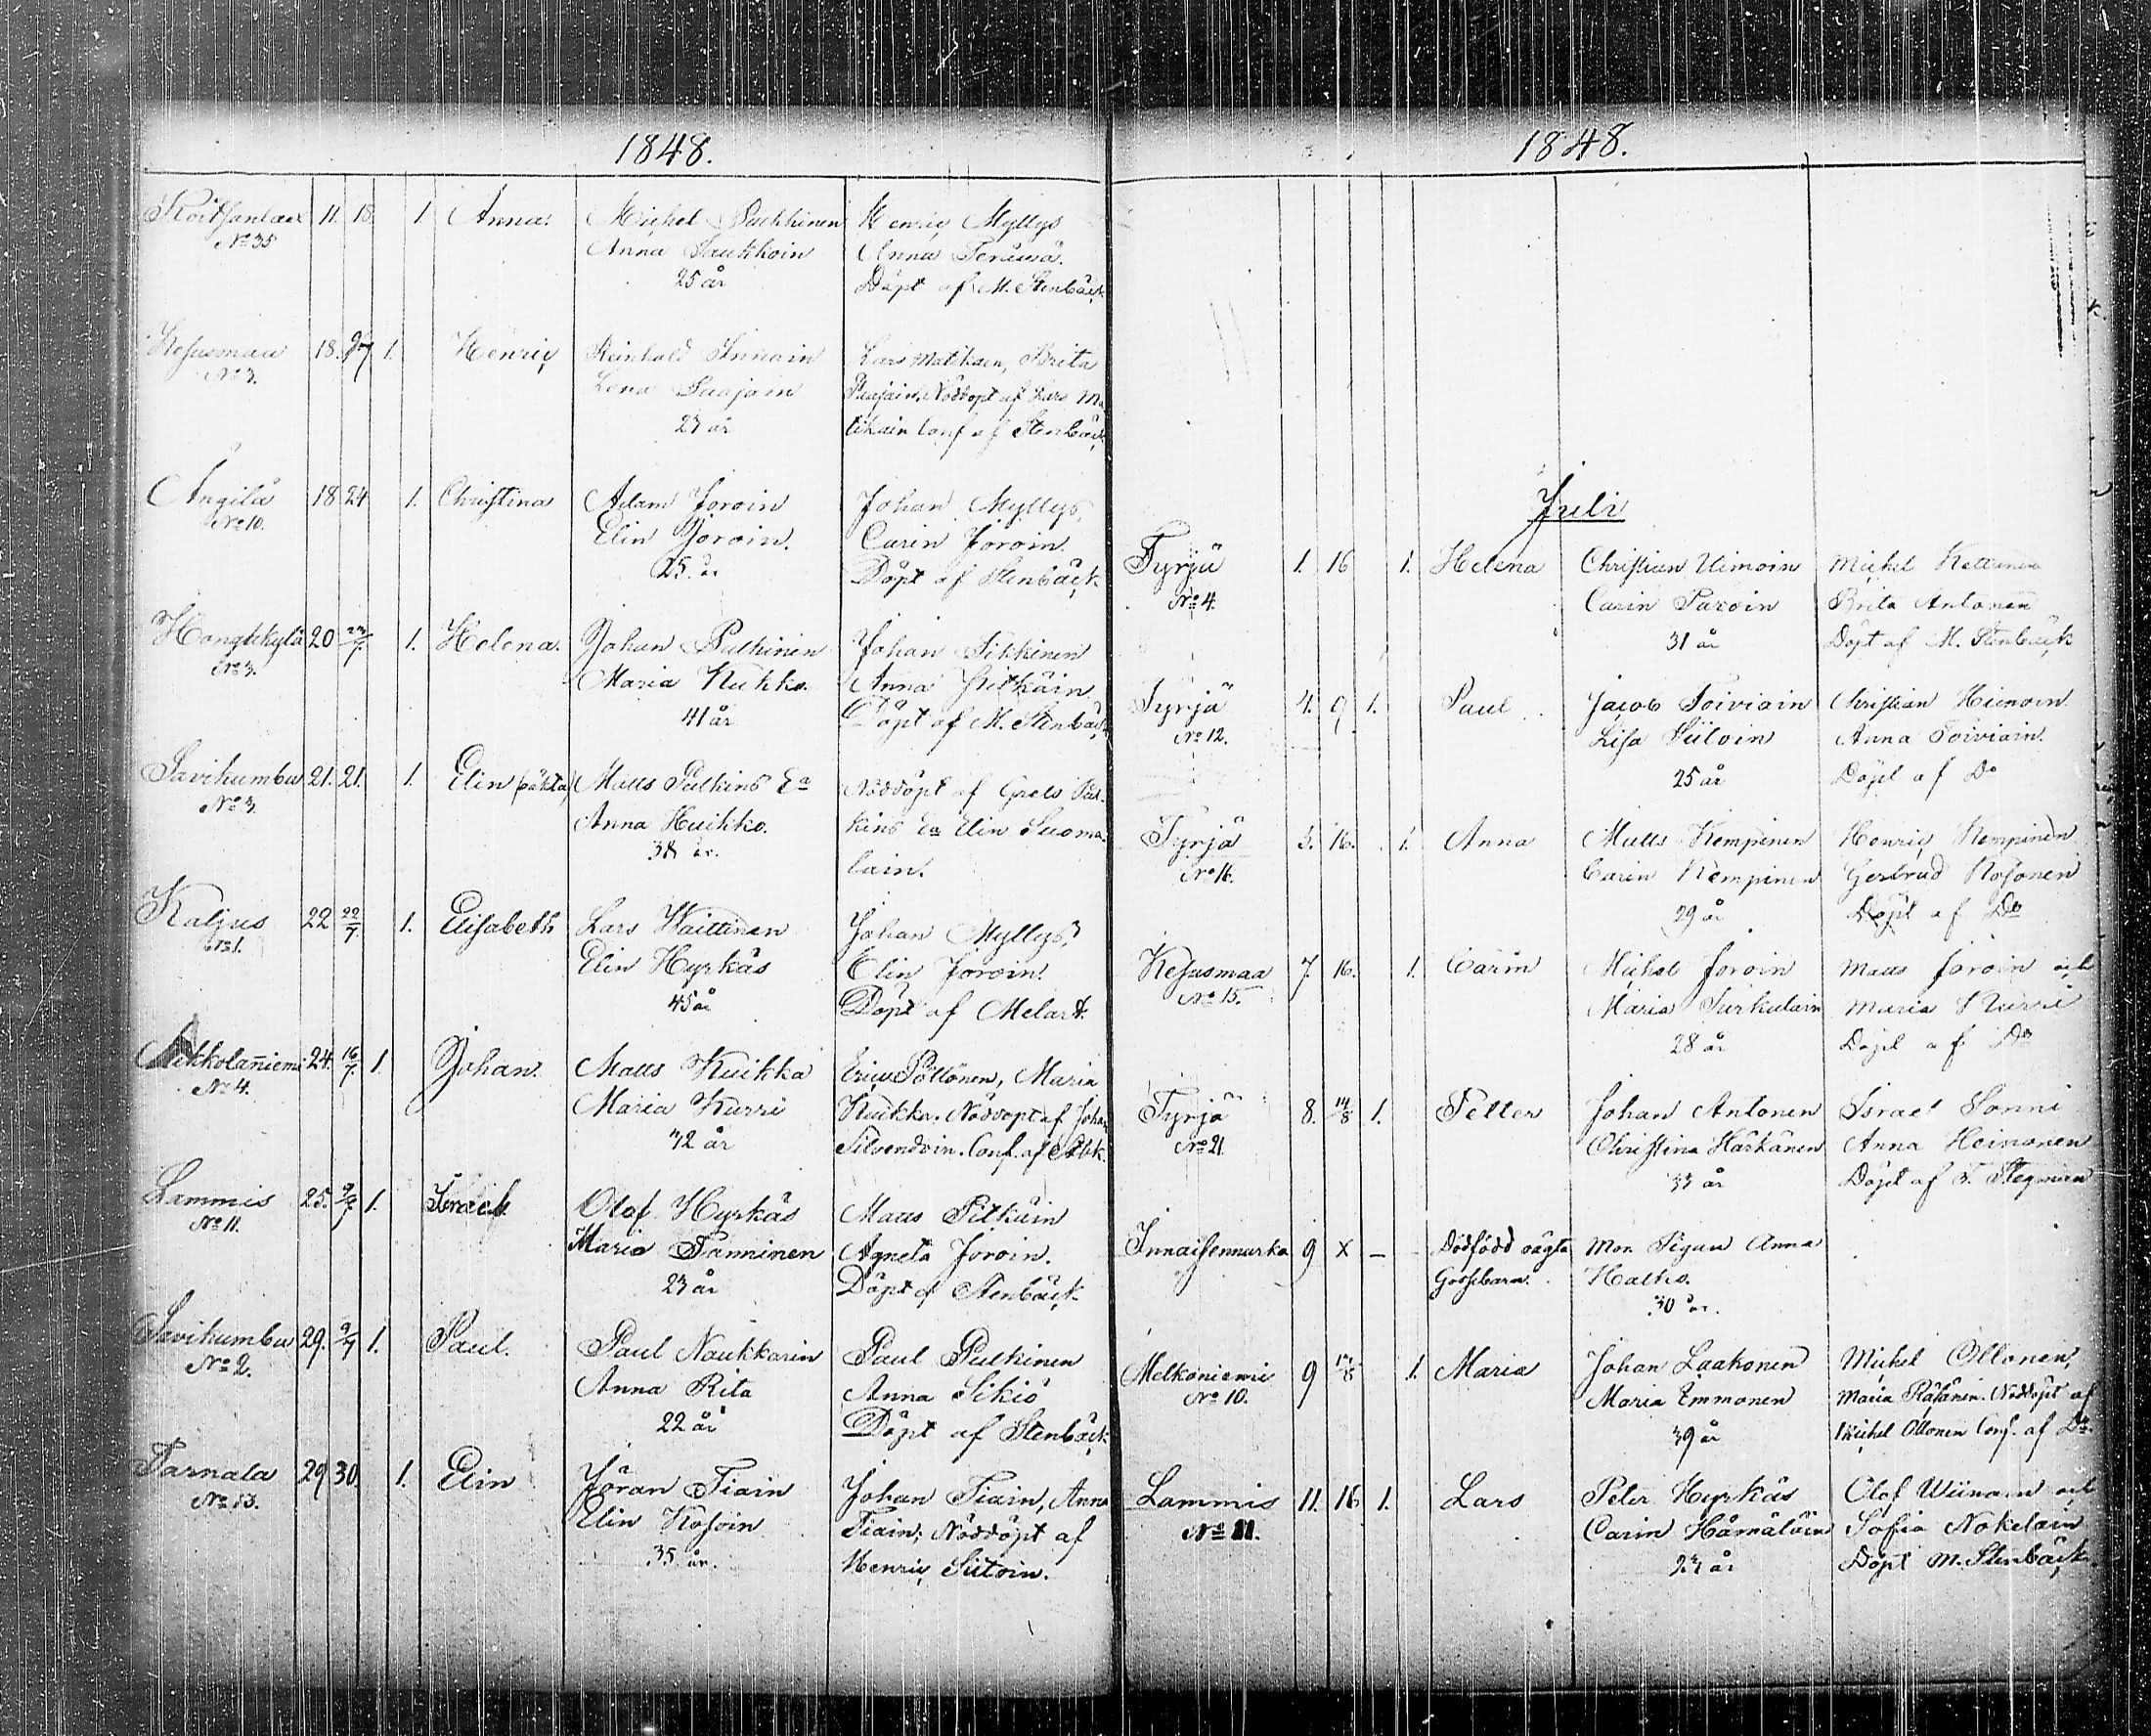 1848.
Koitsanlax 11. 18. 1. Anna. Michel Pulkkinen Henric Myllys
No 35 Anna Laukkoin Anna Teräwä.
25 år Döpt af M. Stenbäck
Kesusmaa 18. 9/7 1. Henric Reinhold Innain Lars Matikain, Brita
No 3. Lena Puajoin Puajoin. Nöddöpt af Lars Ma
23 år tikain Conf af Stenbäck
Ängilä 18 24 1. Christina Adam Joroin Johan Myllys,
No 10. Elin Joroin. Carin Joroin.
25. år Döpt af Stenbäck
Honghkylä 20 1. Helena. Johan Pulkinen Johan Sikkinen
No 3. Maria Kukko. Anna Pitkäin
41 år Döpt af M. Stenbäck
Savikumbu 21. 21. 1. Elin (oäkta) Matts Pulkins Ea Nöddöpt af Grels Pul-
No 3. Anna Huikko. kins Ea Elin Suoma-
38 år. lain.
Kaljus 22 22/7. 1. Elisabeth Lars Waittinen Johan Myllys,
No 1. Elin Hyrkäs Elin Joroin.
45 år Döpt af Melart.
Mikkolaniemi 24. 16/7. 1. Johan. Matts Kuikka Eric Pöllönen, Maria
No 4. Maria Kurri Kuikka. Nöddöpt af Johan
32 år Silvendoin. Conf. af Stbk.
Lammis 25. 1. Olof Hyrkäs Matts Pitkäin
No 11. Maria Tanninen Agneta Joroin.
23 år Döpt af Stenbäck
Savikumbu 29. 9/7 1. Paul. Paul Naukkarin Paul Pulkinen
No 2. Anna Rita Anna Sikiö
22 år Döpt af Stenbäck
Parnala 29 30. 1. Elin Jöran Tiain Johan Tiain, Anna
No 13. Elin Kosoin Tiain; Nöddöpt af
35 år. Henric Siitoin.
1848.
Juli
Tyrjä 1. 16 1. Helena Christian Uimoin Michel Kettunen
No 4. Carin Paroin Brita Antonen
31 år Döpt af M. Stenbäck
Tyrjä 4. 9 1. Paul Jacob Toiviain Christian Heinoin
No 12. Lisa Siitoin Anna Toiviain.
25 år Döpt af Do
Tyrjä 5. 16. 1. Anna Matts Kempinen Henric Kempinen
No 16. Carin Kempinen Gertrud Kosonen
29 år Döpt af Do
Kesusmaa 7. 16. 1. Carin Michel Joroin Matts Joroin och
No 15. Maria Turkulain Maria Kurri
28 år Döpt af Do
Tyrjä 8. 14/8 1. Petter Johan Antonen Israel Sonni
No 21. Christina Härkänen Anna Heinonen
33 år Döpt af F. Stegman
Innaisennurka 9 x — Dödfödd oägta Mon. Pigan Anna
Gossebarn. Halko.
30 år.
Melkoniemi 9 1. Maria Johan Laakonen Michel Ollonen,
No 10. Maria Immonen Maria Räsänen. Nöddöpt af
39 år Michel Ollonen Conf. af Do
Lammis 11. 16 1. Lars Peter Hyrkäs Olof Wiinain och
No 11. Carin Hämäläin Sofia Nokelain
23 år Döpt M. Stenbäck